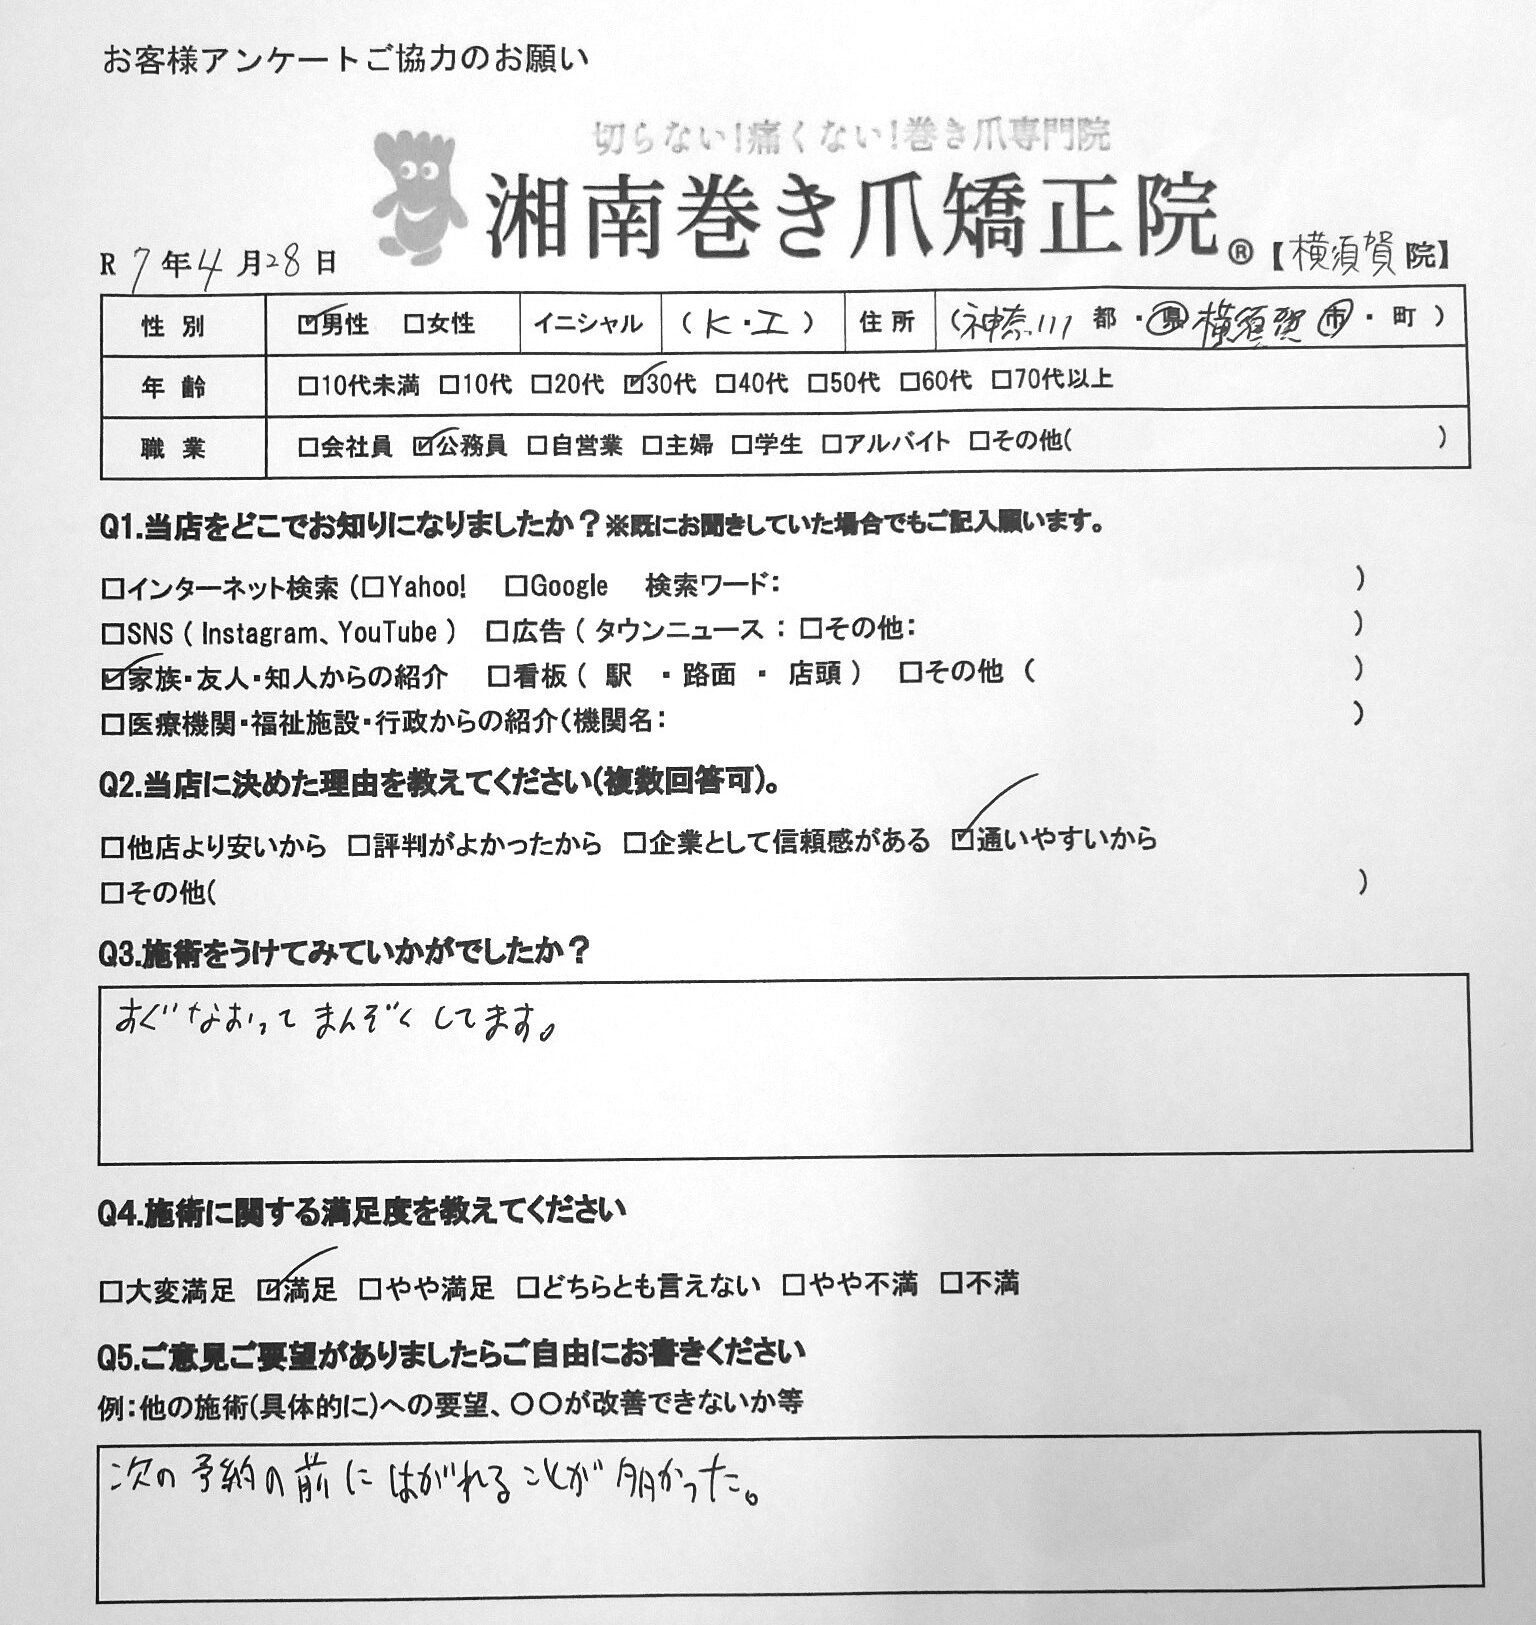 お客様アンケートご協力のお願い
切らない!痛くない!巻き爪専門院
湘南巻き爪矯正院®【横須賀院】
R7年4月28日
性別 ☑男性 □女性 イニシャル (K・I) 住所 (神奈川 都・県 横須賀 市・町)
年齢 □10代未満 □10代 □20代 ☑30代 □40代 □50代 □60代 □70代以上
職業 □会社員 ☑公務員 □自営業 □主婦 □学生 □アルバイト □その他( )
Q1.当店をどこでお知りになりましたか?※既にお聞きしていた場合でもご記入願います。
□インターネット検索 (□Yahoo! □Google 検索ワード: )
□SNS ( Instagram、YouTube ) □広告 ( タウンニュース : □その他: )
☑家族・友人・知人からの紹介 □看板 ( 駅 ・ 路面 ・ 店頭 ) □その他 ( )
□医療機関・福祉施設・行政からの紹介(機関名: )
Q2.当店に決めた理由を教えてください(複数回答可)。
□他店より安いから □評判がよかったから □企業として信頼感がある ☑通いやすいから
□その他( )
Q3.施術をうけてみていかがでしたか?
すぐなおってまんぞくしてます。
Q4.施術に関する満足度を教えてください
□大変満足 ☑満足 □やや満足 □どちらとも言えない □やや不満 □不満
Q5.ご意見ご要望がありましたらご自由にお書きください
例:他の施術(具体的に)への要望、〇〇が改善できないか等
次の予約の前にはがれることが多かった。